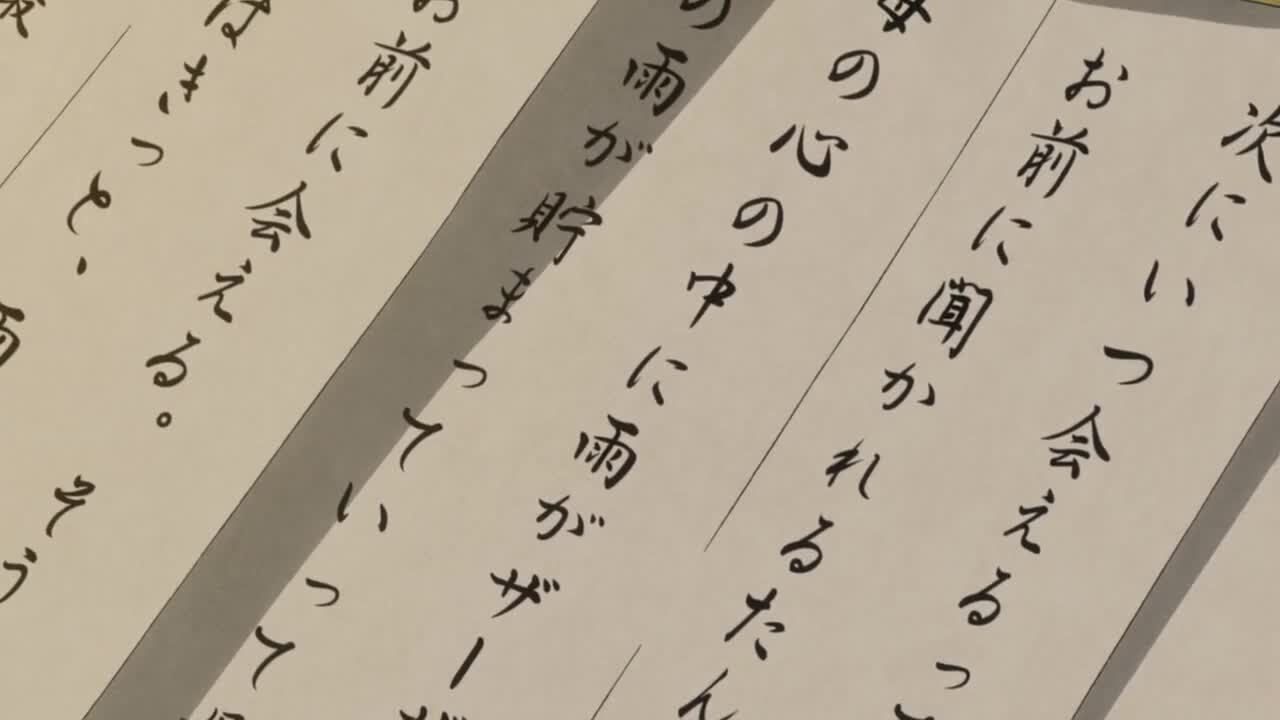 次にいつ会えるって
お前に聞かれるたん
母の心の中に雨がザーザ
の雨が貯まっていって
お前に会える。
はきっと、そう